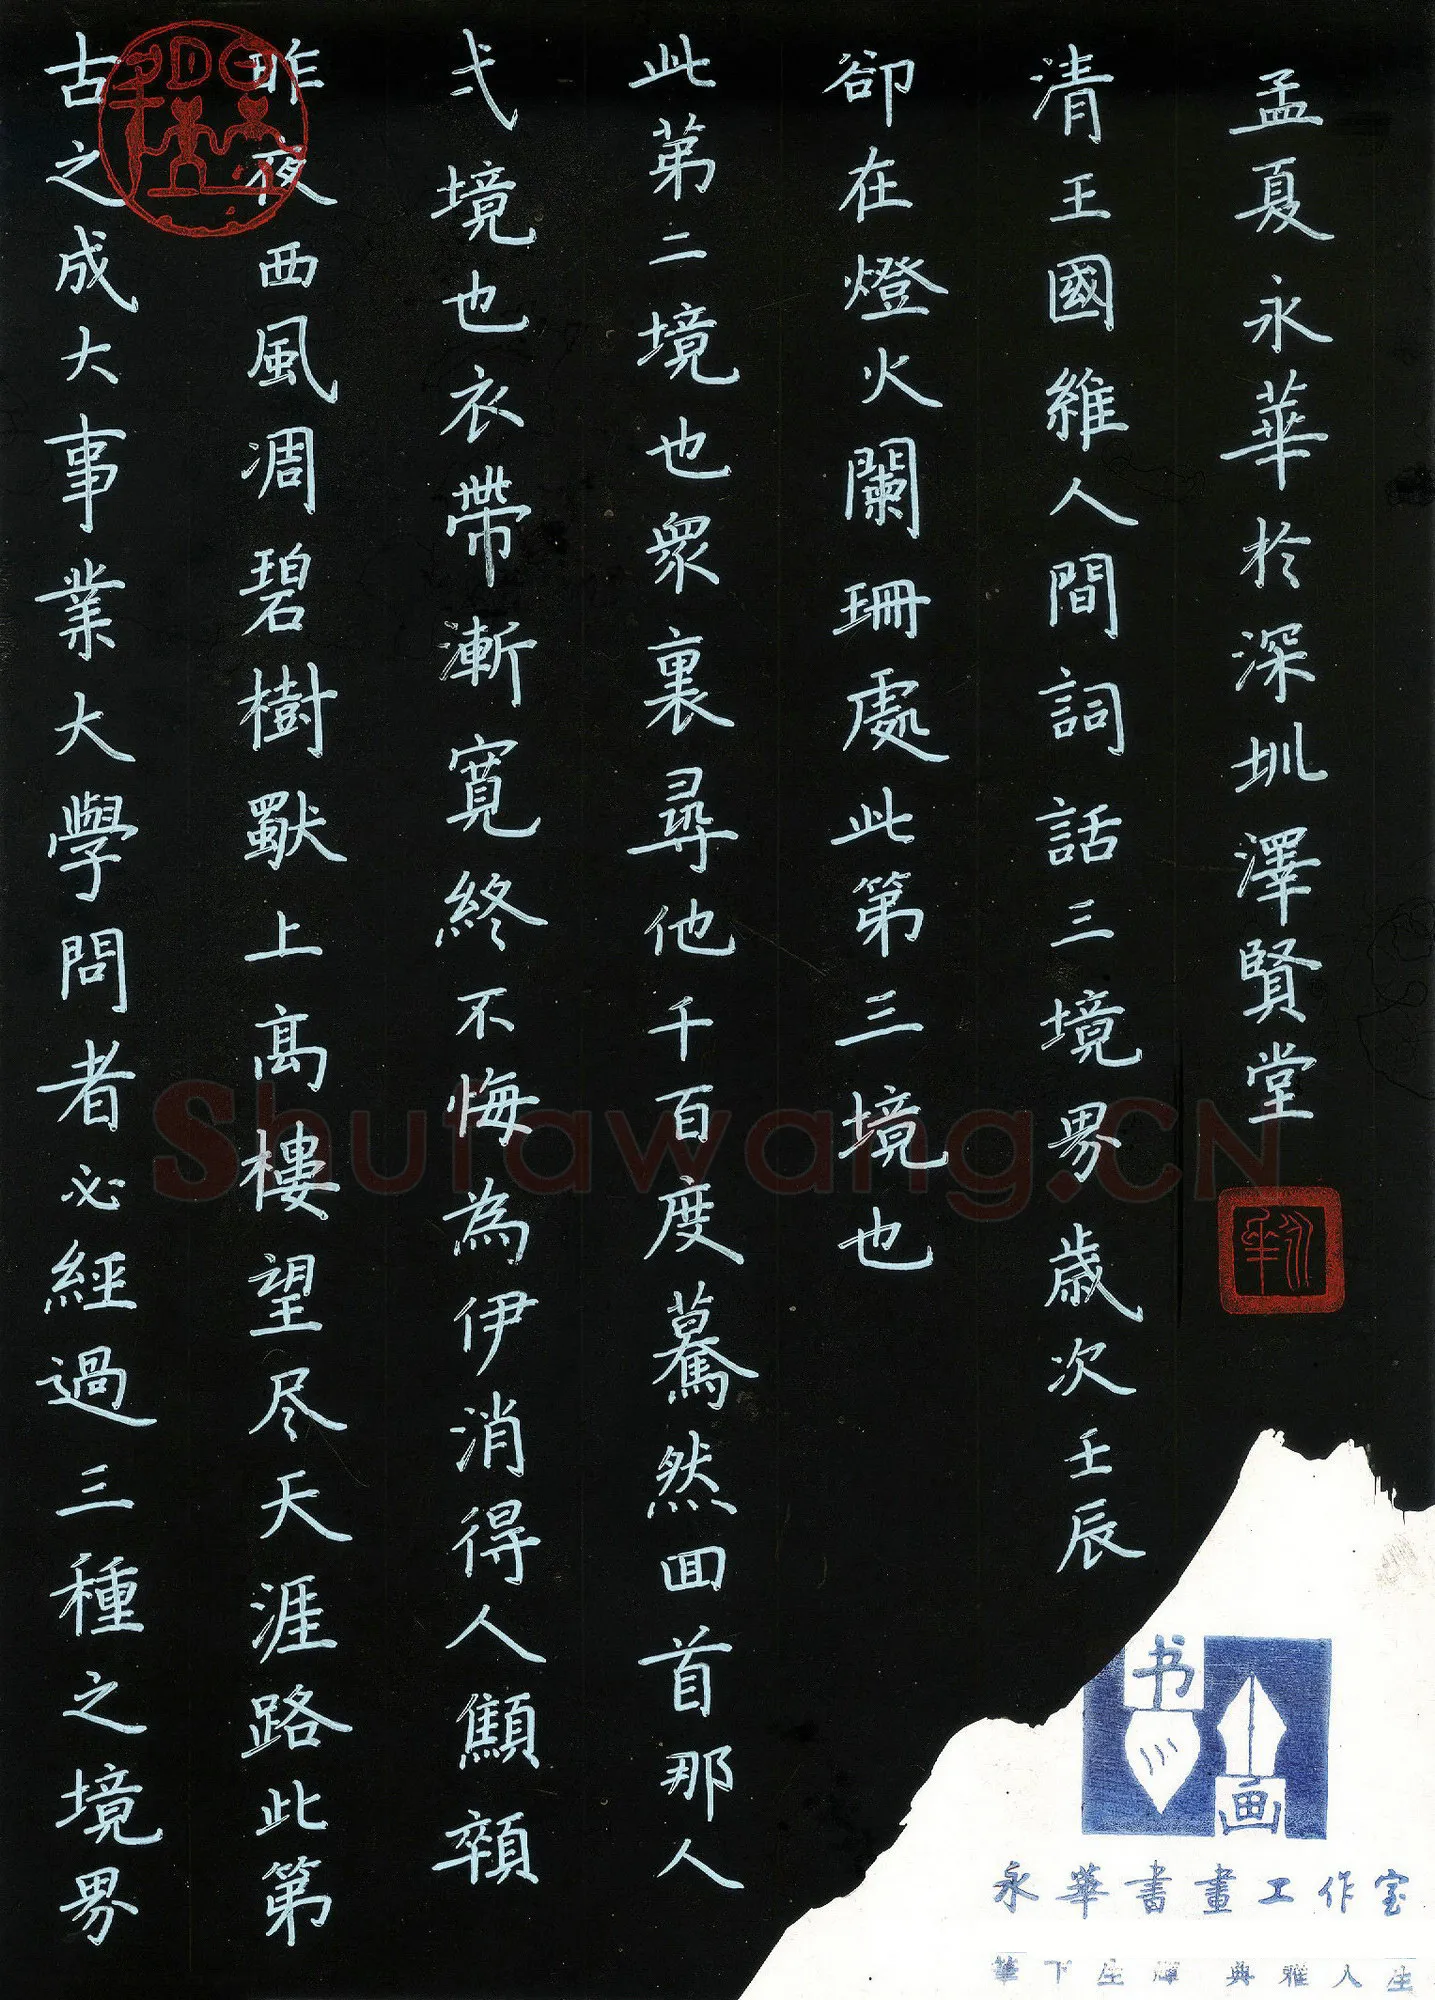 古之成大事業大學問者必經過三種之境界
昨夜西風凋碧樹獨上高樓望尽天涯路此第
弌境也衣帶漸寬終不悔為伊消得人顦顇
此第二境也衆裏尋他千百度驀然回首那人
卻在燈火闌珊處此第三境也
清王國維人間詞話三境界歲次壬辰
孟夏永華於深圳澤賢堂
永華
Shufawang.CN
书
画
永華書畫工作室
筆下生輝 典雅人生